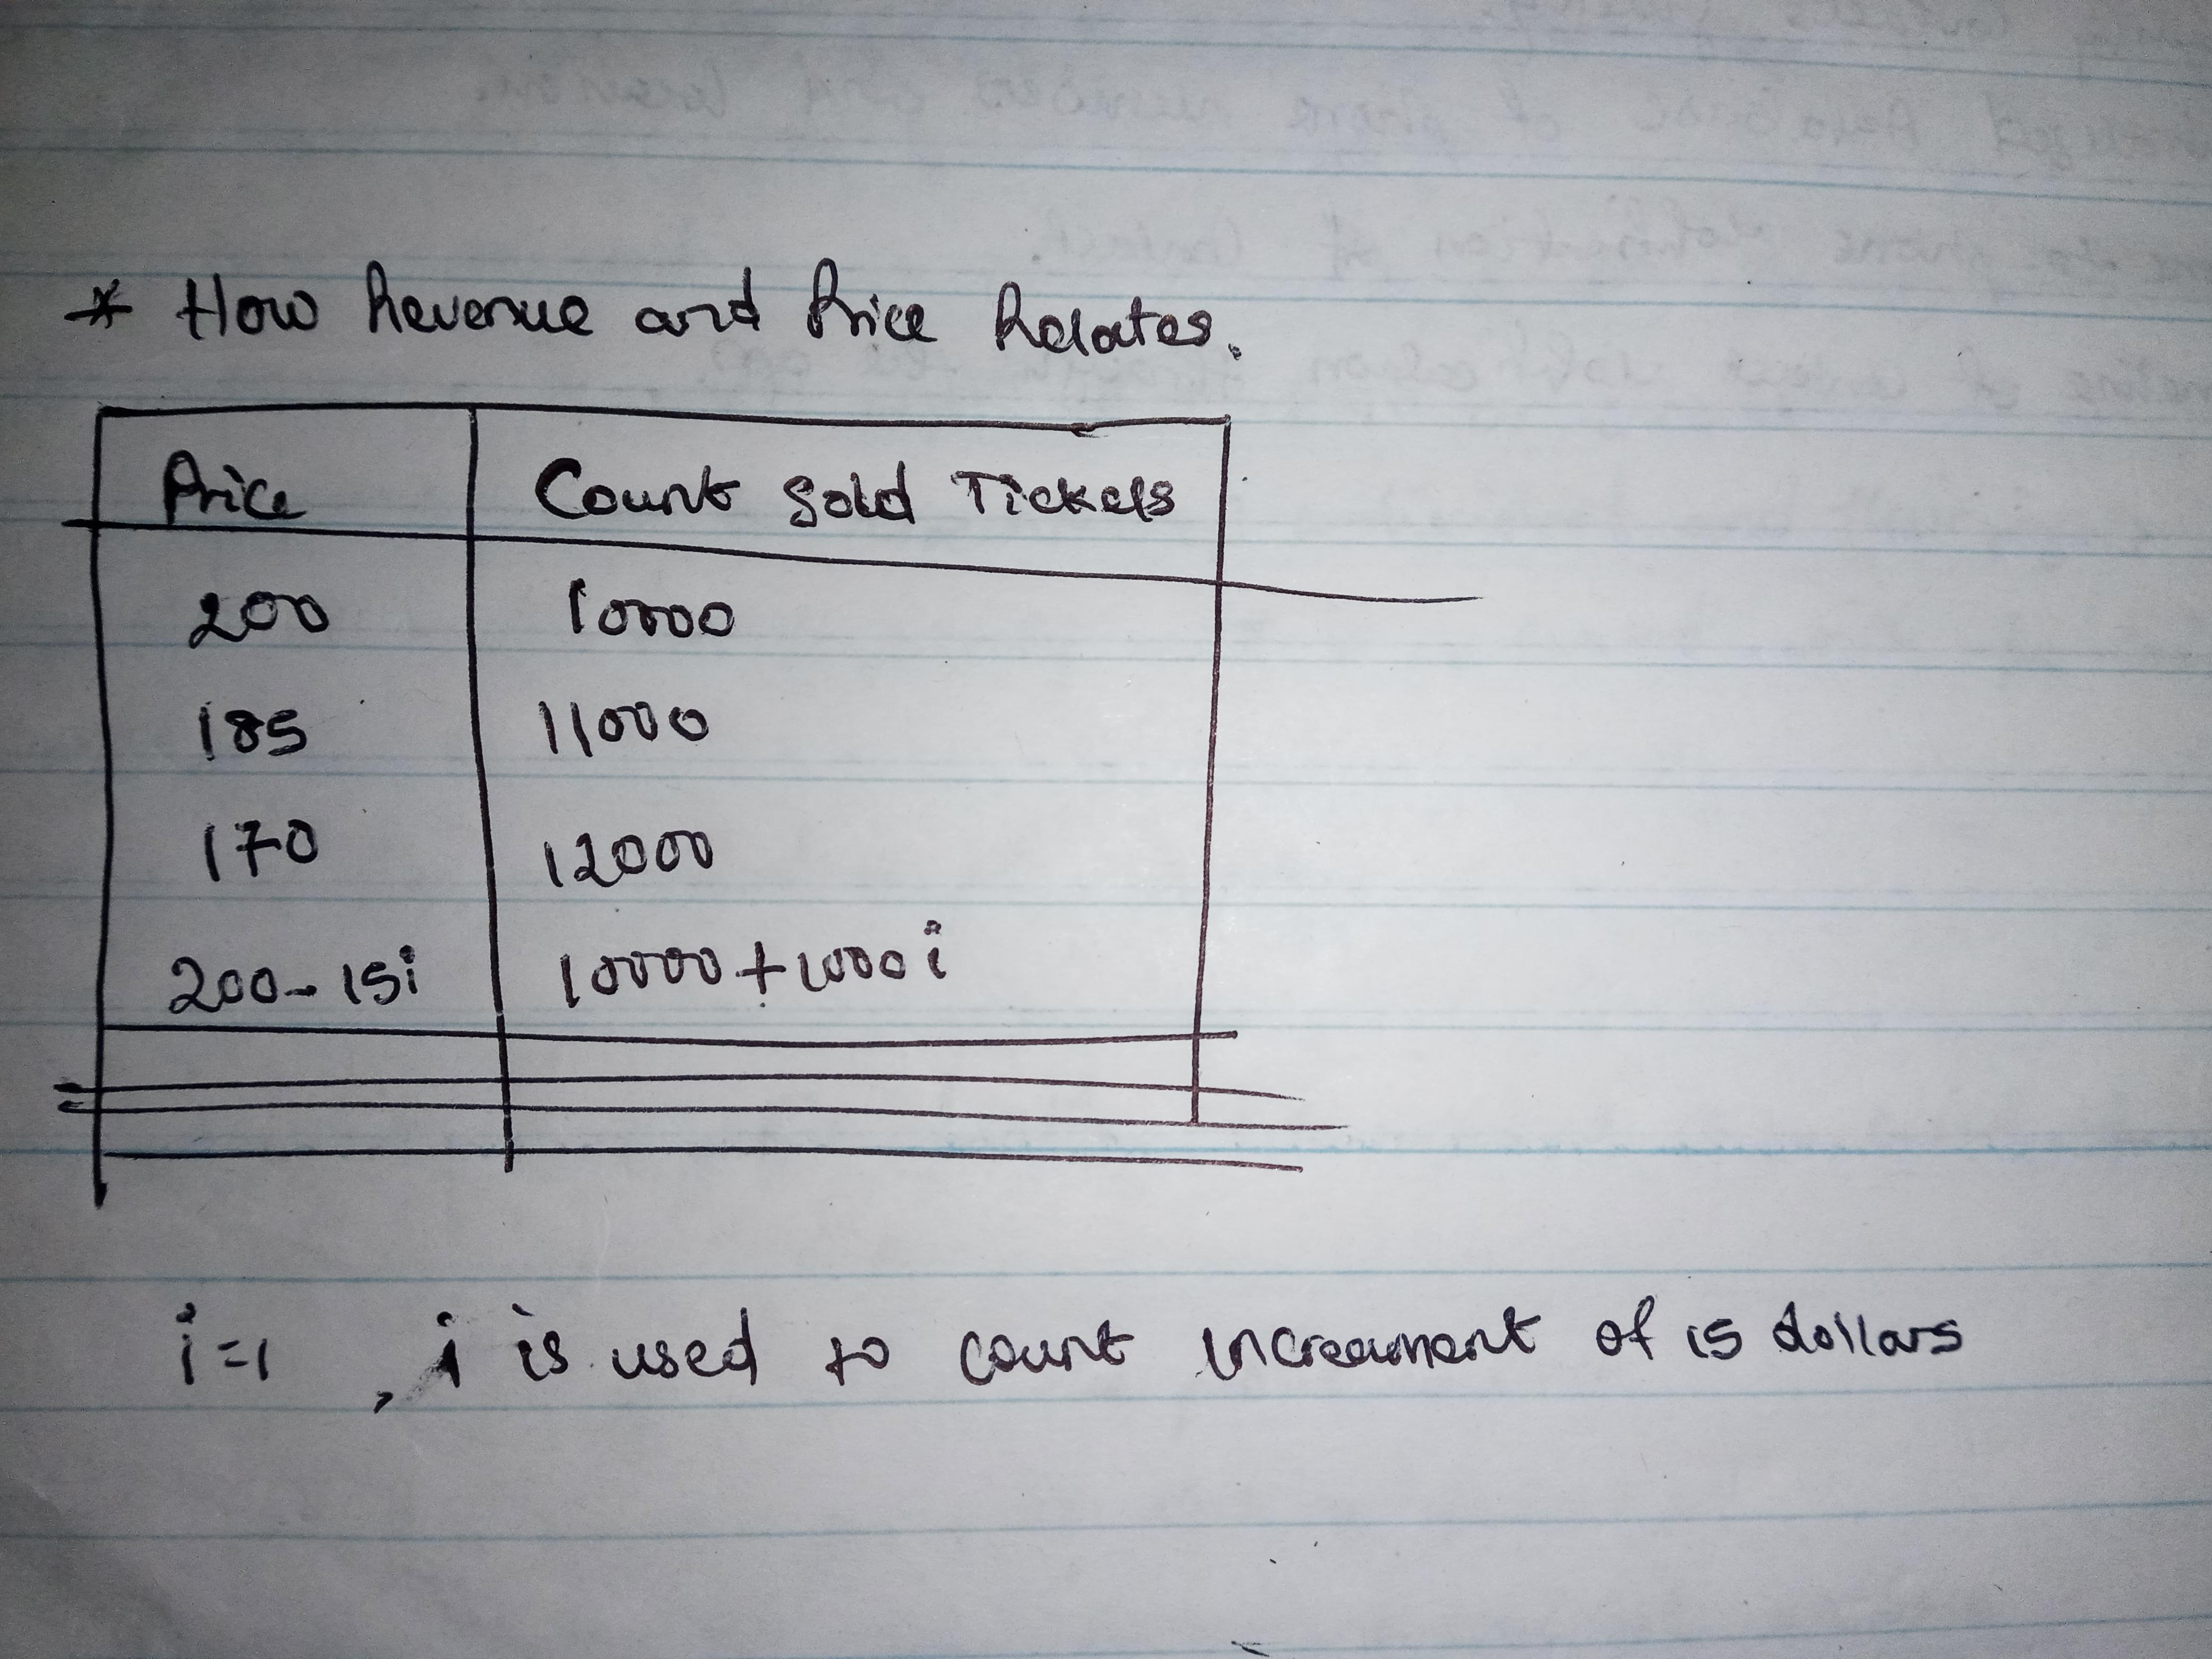 * How Revenue and Price Relates.
Price Count Sold Tickets
200 10000
185 11000
170 12000
200-15i 10000+1000i
i=1 , i is used to count increament of 15 dollars